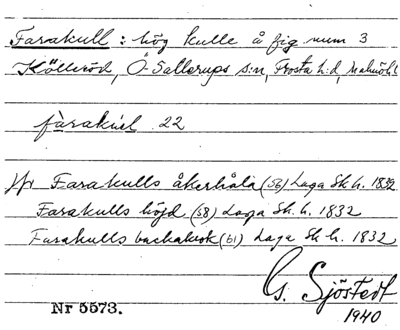 Farakull : hög kulle å fig num 3
Källeröd, Ö. Sallerups s:n, Frosta h:d, Malmöhl
fàrakúel 22
jfr Farakulls åkerhåla (56) Laga Sk. h. 1832
Farakulls höjd (58) Laga Sk. h. 1832
Farakulls backakrok (61) Laga Sk h. 1832
G. Sjöstedt
1940
Nr 5573.